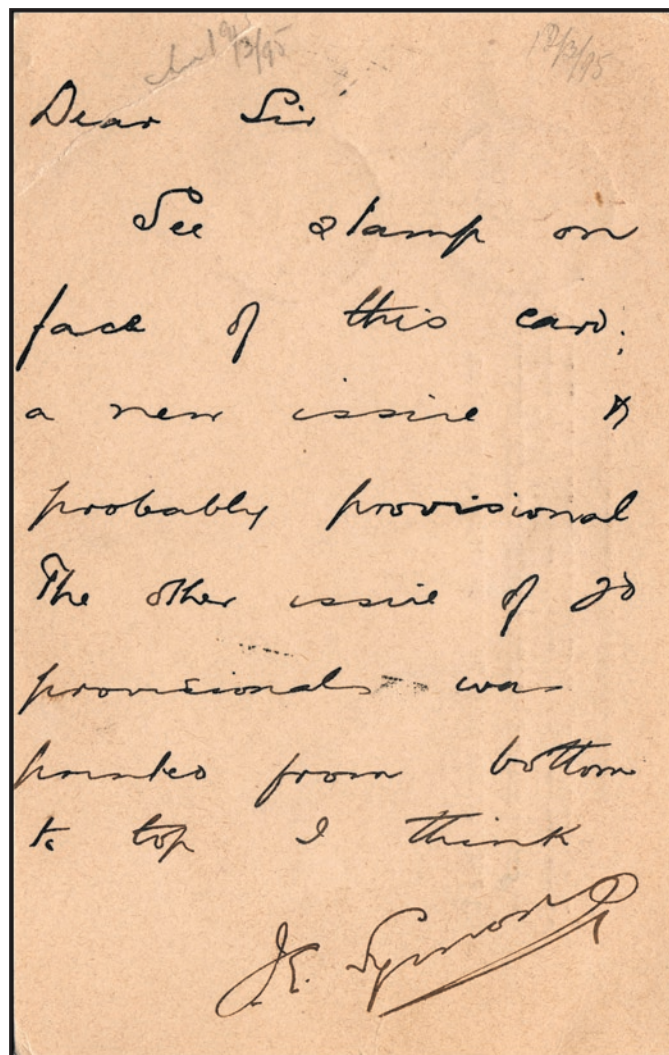 /3/95
/3/95
Dear Sir
See stamp on
face of this card;
a new issue &
probably provisional
The other issue of 2d
provisionals was
printed from bottom
to top I think
J.E. Symons